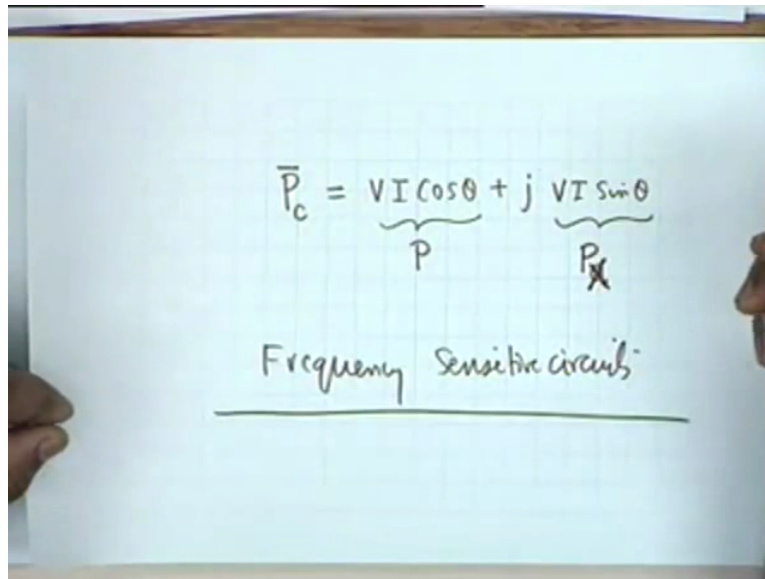 P̄c = VI Cosθ + j VI Sinθ
P Px
Frequency Sensitive circuits